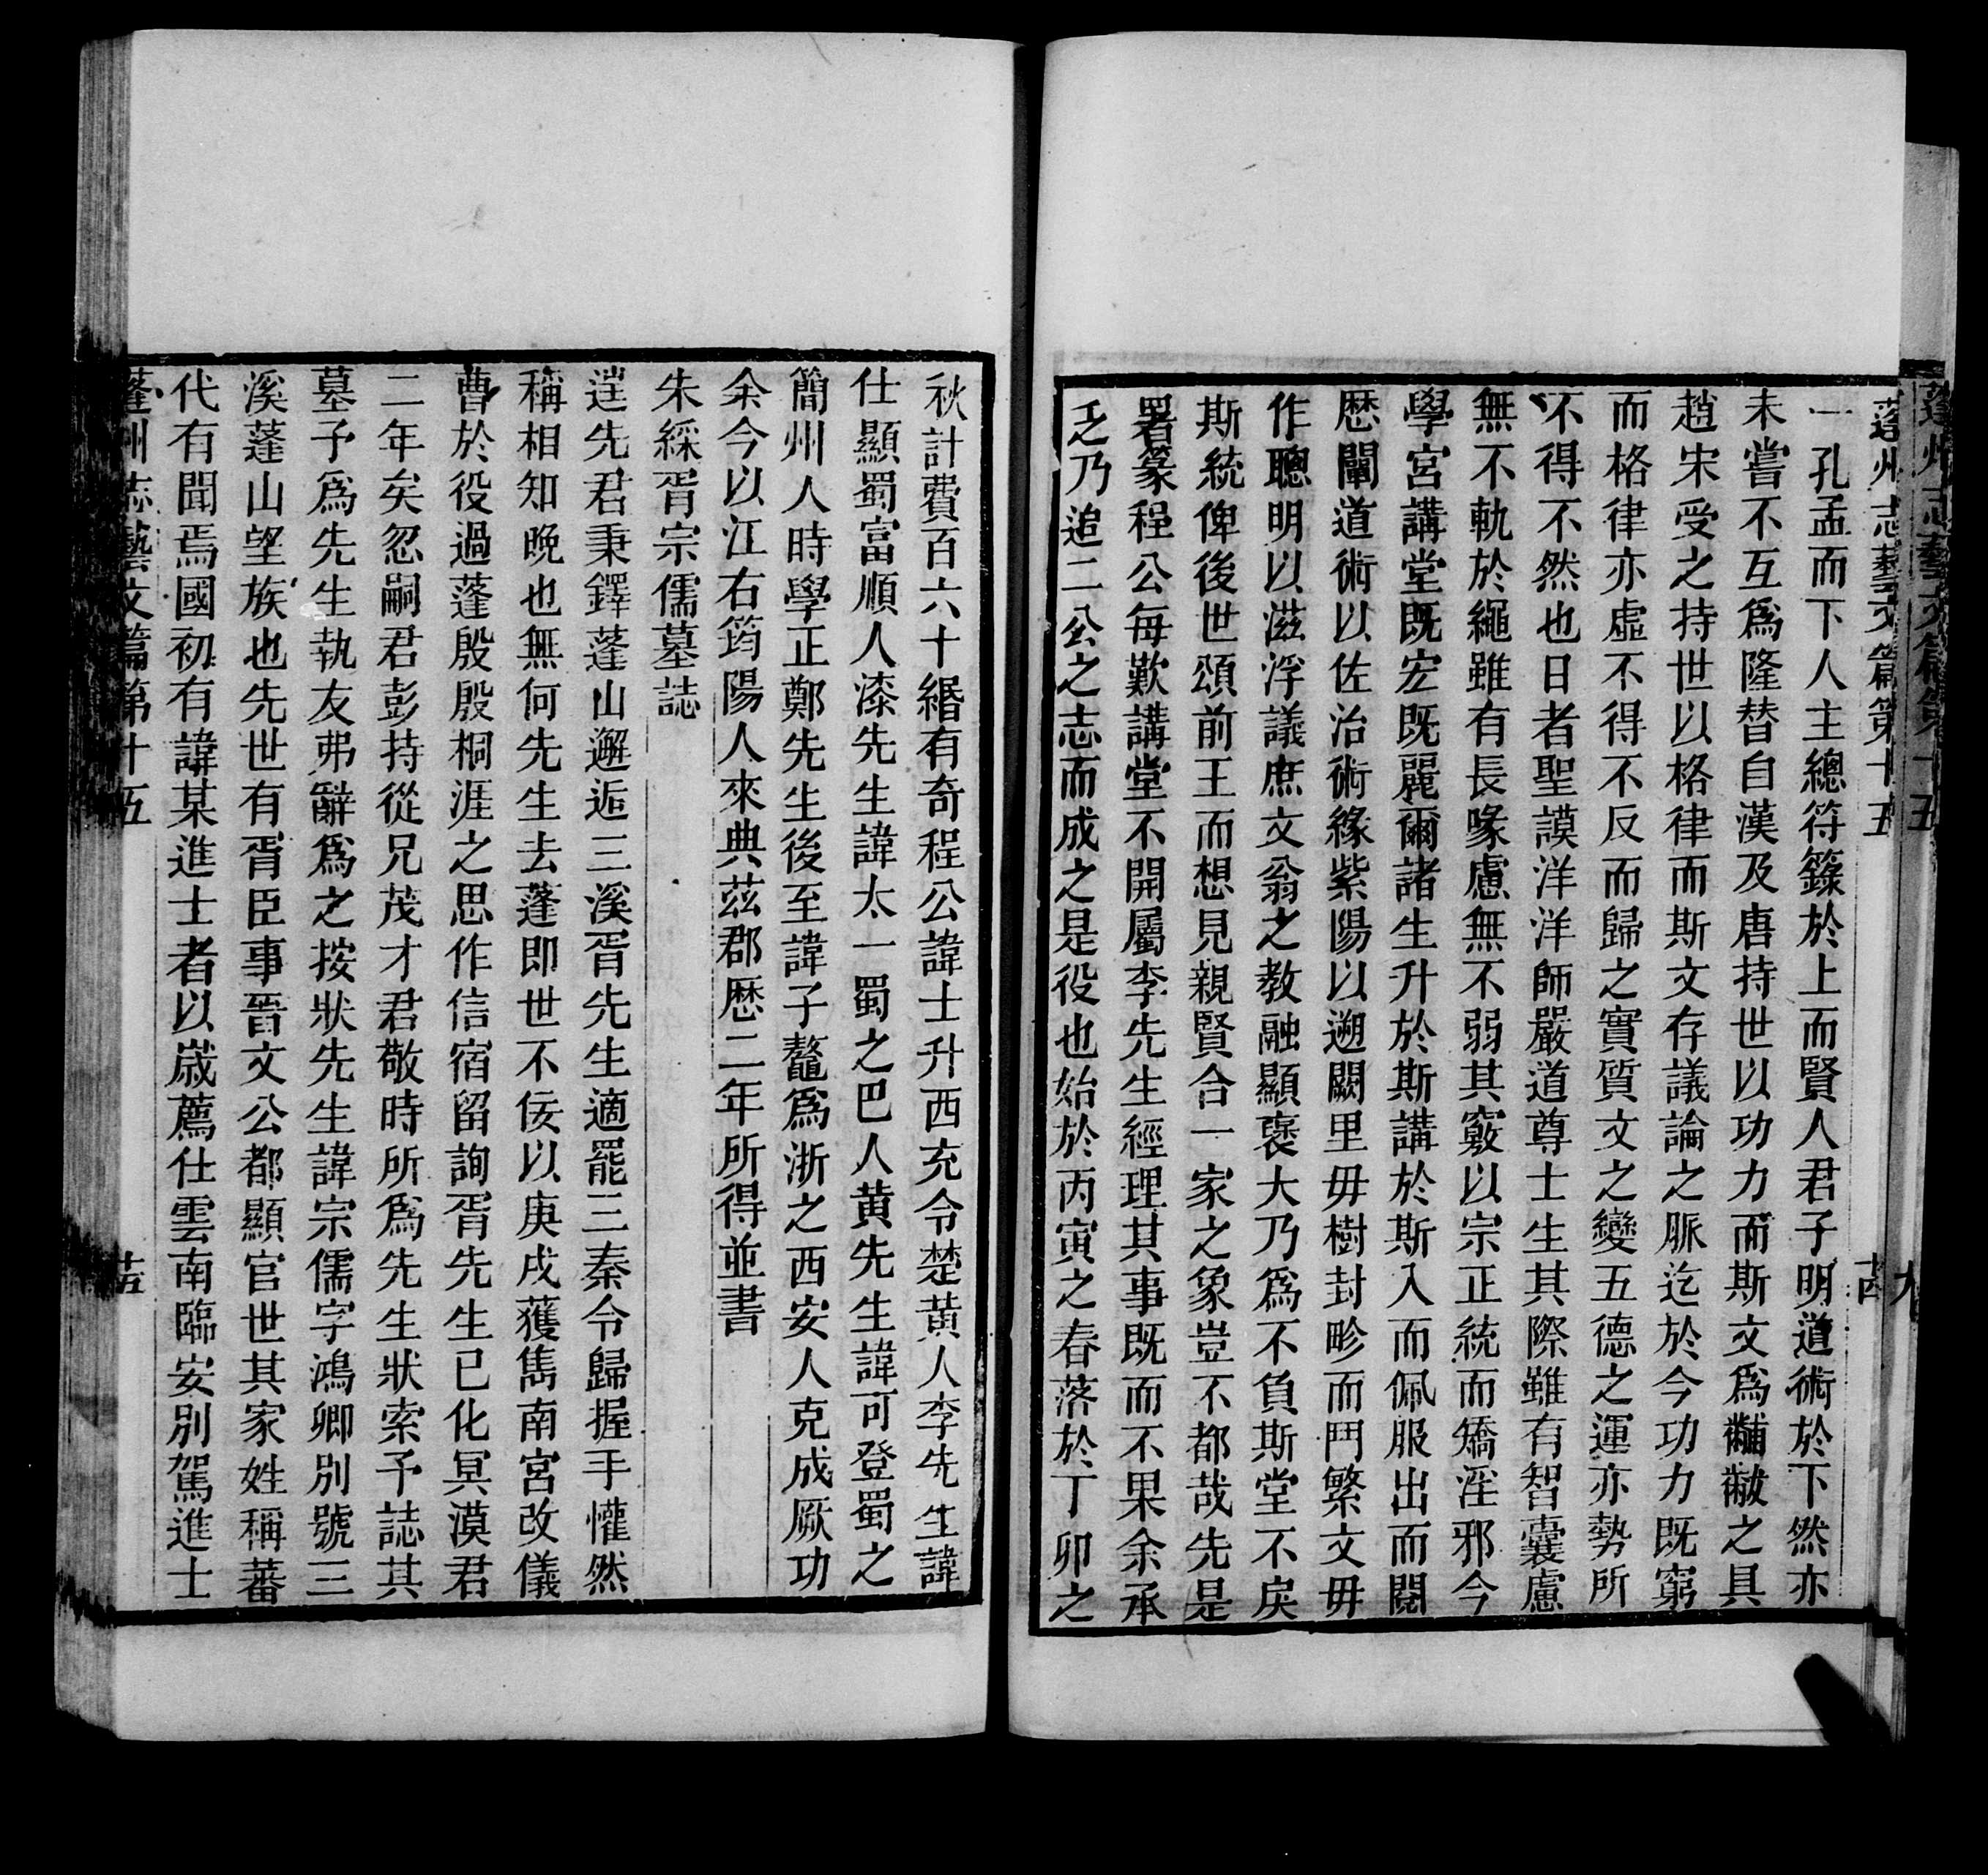 蓬州志藝文篇第十五
蓬州志藝文篇第十五
一孔孟而下人主總符籙於上而賢人君子明道術於下然亦
未嘗不互爲隆替自漢及唐持世以功力而斯文爲黼黻之具
趙宋受之持世以格律而斯文存議論之脈迄於今功力既窮
而格律亦虛不得不反而歸之實質文之變五德之運亦勢所
不得不然也日者聖謨洋洋師嚴道尊士生其際雖有智囊慮
無不軌於繩雖有長喙慮無不弱其竅以宗正統而矯淫邪今
學宮講堂既宏既麗爾諸生升於斯講於斯入而佩服出而閱
歷闡道術以佐治術緣紫陽以遡闕里毋樹封畛而鬥繁文毋
作聰明以滋浮議庶文翁之教融顯褒大乃爲不負斯堂不戾
斯統俾後世頌前王而想見親賢合一家之象豈不都哉先是
署篆程公每歎講堂不開屬李先生經理其事既而不果余承
乏乃追二公之志而成之是役也始於丙寅之春落於丁卯之
秋計費百六十緡有奇程公諱士升西充令楚黃人李先生諱
仕顯蜀富順人漆先生諱太一蜀之巴人黃先生諱可登蜀之
簡州人時學正鄭先生後至諱子鼇爲浙之西安人克成厥功
余今以江右筠陽人來典茲郡歷二年所得並書
朱綵胥宗儒墓誌
逞先君秉鐸蓬山邂逅三溪胥先生適罷三秦令歸握手懽然
稱相知晚也無何先生去蓬即世不佞以庚戌獲雋南宮改儀
曹於役過蓬殷殷桐涯之思作信宿留詢胥先生已化冥漠君
二年矣忽嗣君彭持從兄茂才君敬時所爲先生狀索予誌其
墓予爲先生執友弗辭爲之按狀先生諱宗儒字鴻卿別號三
溪蓬山望族也先世有胥臣事晉文公都顯官世其家姓稱蕃
代有聞焉國初有諱某進士者以歲薦仕雲南臨安別駕進士
蓬州志藝文篇第十五